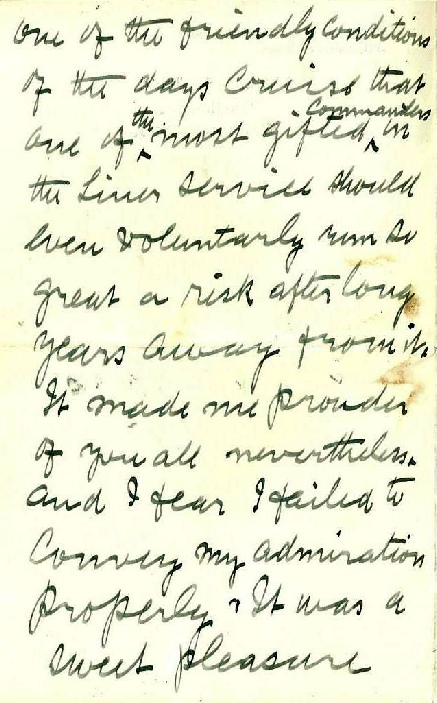 one of the friendly conditions
of the days Cruise that
one of the most gifted Commanders in
the Liner service should
even voluntarily run so
great a risk after long
years away from it.
It made me prouder
of you all nevertheless.
and I fear I failed to
Convey my admiration
properly. It was a
sweet pleasure